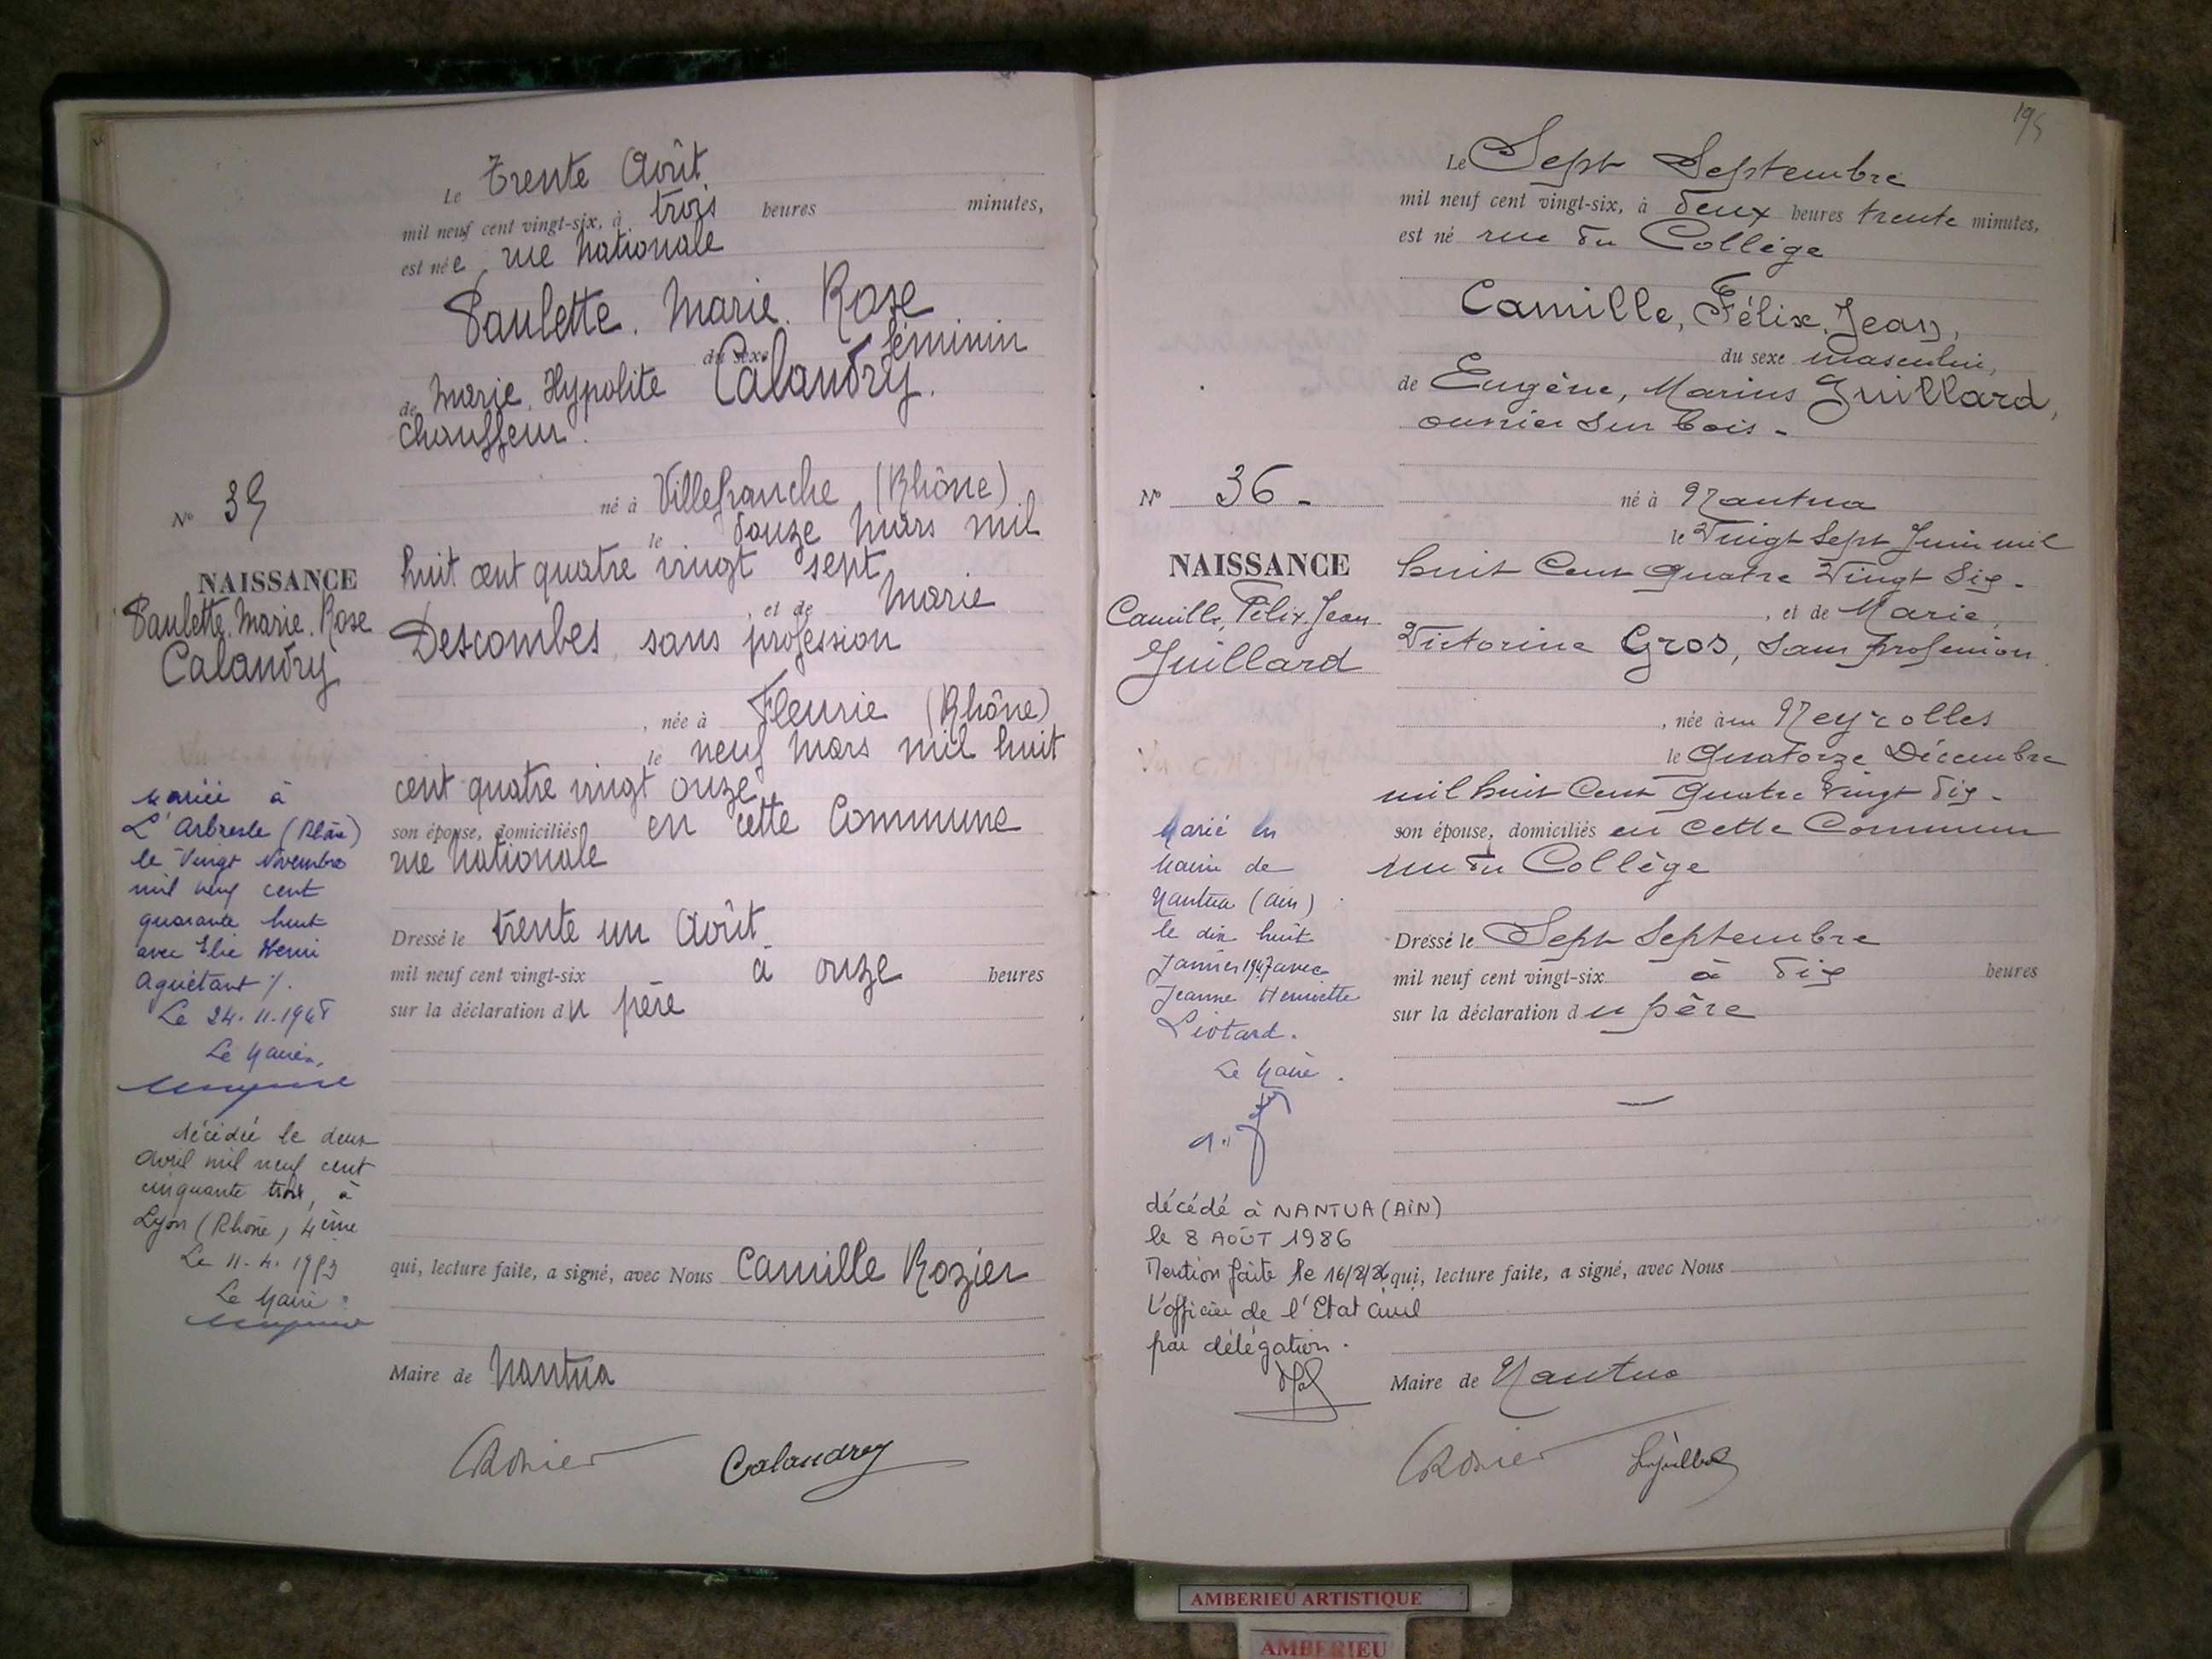 Le Trente Août
mil neuf cent vingt-six, à trois heures minutes,
est née, rue Nationale
Paulette. Marie. Rose
du sexe féminin
de Marie, Hypolite Calandry.
chauffeur.
né à Villefranche (Rhône)
le douze mars mil
huit cent quatre vingt sept
, et de Marie
Descombes, sans profession
, née à Fleurie (Rhône)
le neuf mars mil huit
cent quatre vingt onze
son épouse, domiciliés en cette Commune
rue Nationale
Dressé le trente un Août
mil neuf cent vingt-six à onze heures
sur la déclaration du père
qui, lecture faite, a signé, avec Nous Camille Rozier
Maire de Nantua
Calandry
N°
NAISSANCE
Paulette. Marie. Rose
Calandry
Mariée à
L'Arbresle (Rhône)
le Vingt Novembre
mil neuf cent
quarante huit
avec Elie Henri
Aguétant
Le 24.11.1948
Le Maire,
décédée le deux
Avril mil neuf cent
cinquante trois, à
Lyon (Rhône) 4ème
Le 11.4.1953
Le Maire
195
Le Sept Septembre
mil neuf cent vingt-six, à deux heures trente minutes,
est né rue du Collège
Camille, Félix, Jean,
du sexe masculin,
de Eugène, Marius Guillard,
ouvrier sur bois -
né à Nantua
le Vingt Sept Juin mil
huit Cent Quatre Vingt Six -
, et de Marie,
Victorine Gros, Sans profession
, née à Neyrolles
le Quatorze Décembre
mil huit Cent Quatre Vingt dix -
son épouse, domiciliés en cette Commune
rue du Collège
Dressé le Sept Septembre
mil neuf cent vingt-six à dix heures
sur la déclaration du père
qui, lecture faite, a signé, avec Nous
Maire de Nantua
N° 36 -
NAISSANCE
Camille, Félix, Jean
Guillard
Marié en
Mairie de
Nantua (Ain)
le dix huit
Janvier 1947 avec
Jeanne Henriette
Liotard.
Le Maire.
décédé à NANTUA (AIN)
le 8 AOÛT 1986
Mention faite le 16/8/86
L'officier de l'Etat Civil
par délégation.
AMBERIEU ARTISTIQUE
AMBERIEU